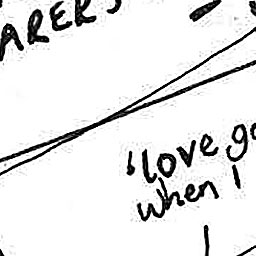 ARERS
'love go
when I